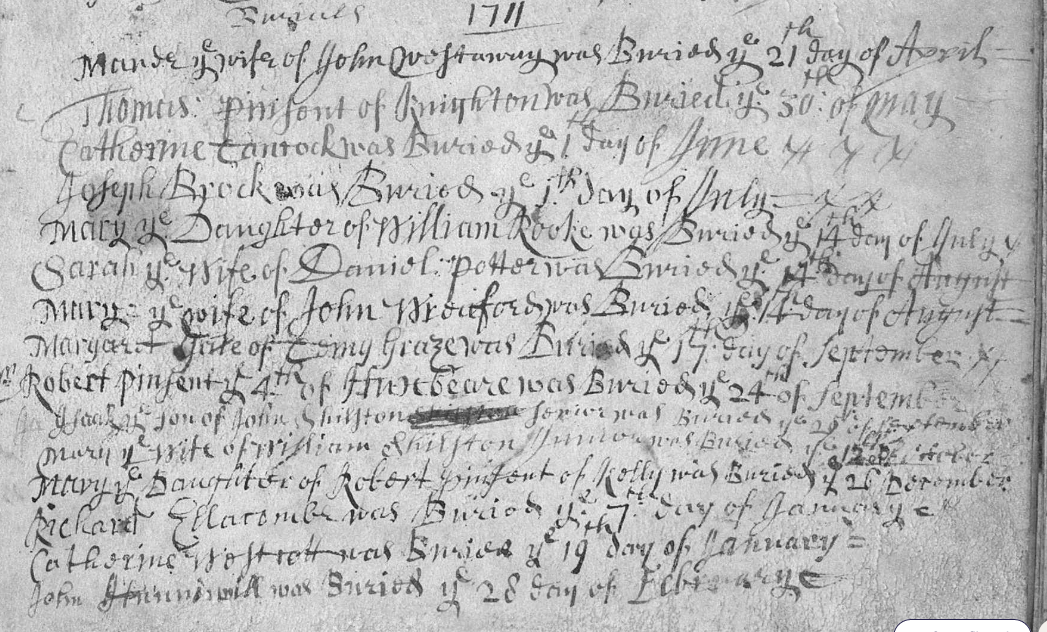 Burials 1711
Maude ye wife of John Westaway was Buried ye 21th day of April
Thomas: Pinsent of Knighton was Buried ye 30th: of May
Catherine Tancock was Buried ye 1th day of June
Joseph Brock was Buried ye 1th day of July
Mary ye Daughter of William Rooke was Buried ye 14th day of July
Sarah ye Wife of Daniel: Potter was Buried ye 14th day of August
Mary ye wife of John Wreford was Buried ye 14 day of August
Margaret of Graze was Buried ye 17th day of September
Robert Pinsent ye 4th of was Buried ye 24th of September
ye son of John Shilston senior was Buried ye 28 of September
Mary ye Wife of William Shilston Junior was Buried ye October
Mary ye Daughter of Robert Pinsent of Kelly was Buried ye 26 December
Richard Ellacombe was Buried ye 7th day of January
Catherine Westcott was Buried ye 19th day of January
John was Buried ye 28 day of February